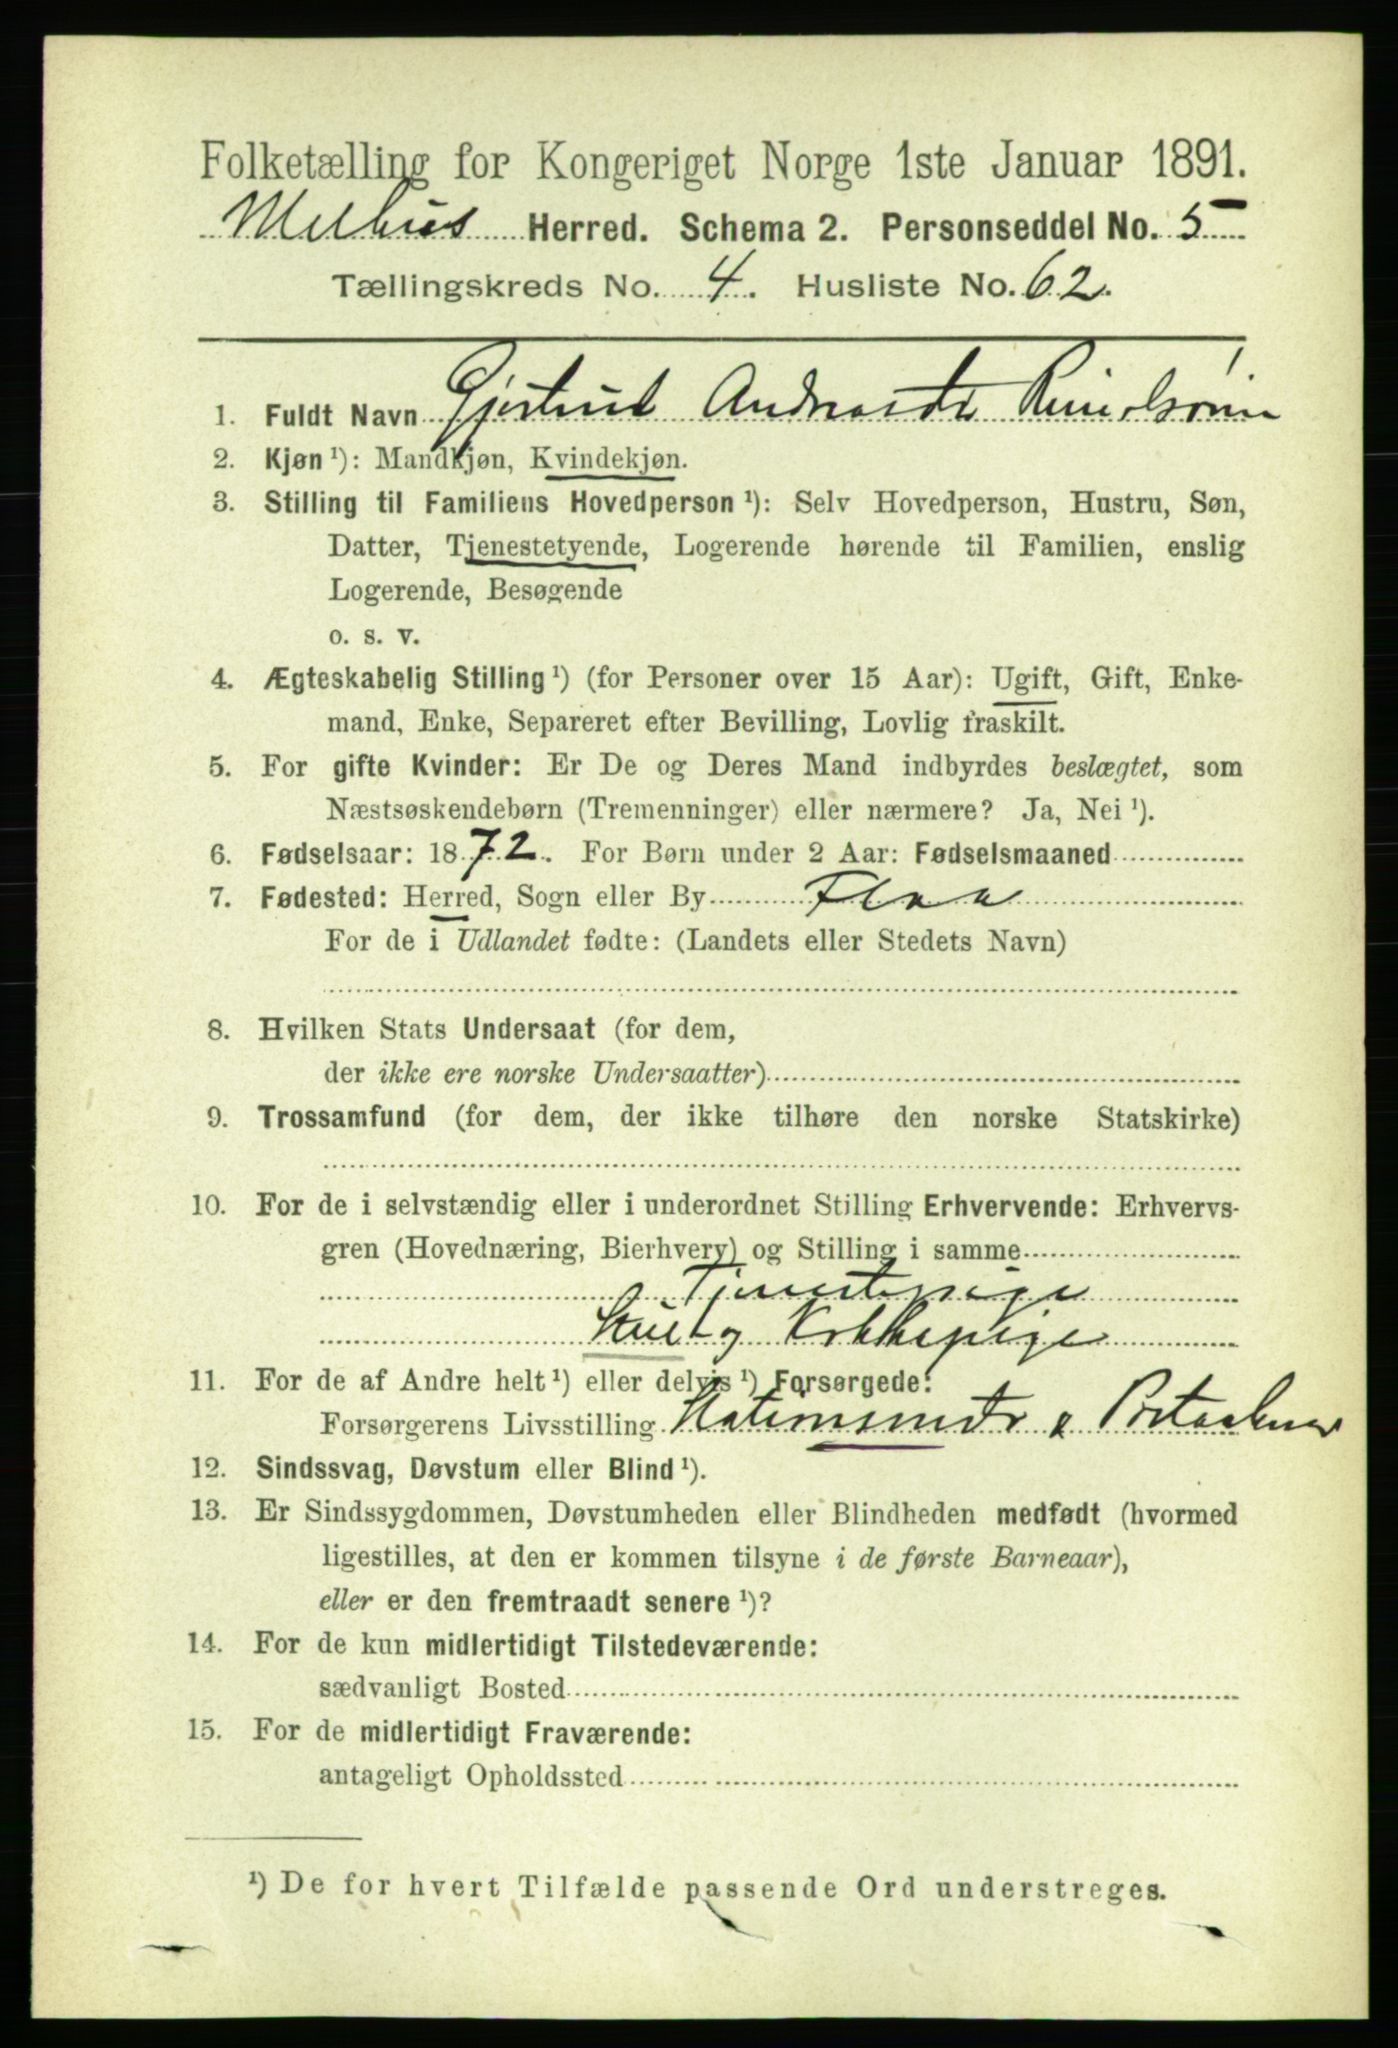 Folketælling for Kongeriget Norge 1ste Januar 1891.
Melhus Herred. Schema 2. Personseddel No. 5
Tællingskreds No. 4. Husliste No. 62.
1. Fuldt Navn Gjertrud Andreasdr
2. Kjøn ¹): Mandkjøn, Kvindekjøn.
3. Stilling til Familiens Hovedperson ¹): Selv Hovedperson, Hustru, Søn,
Datter, Tjenestetyende, Logerende hørende til Familien, enslig
Logerende, Besøgende
o. s. v.
4. Ægteskabelig Stilling ¹) (for Personer over 15 Aar): Ugift, Gift, Enke-
mand, Enke, Separeret efter Bevilling, Lovlig fraskilt.
5. For gifte Kvinder: Er De og Deres Mand indbyrdes beslægtet, som
Næstsøskendebørn (Tremenninger) eller nærmere? Ja, Nei ¹).
6. Fødselsaar: 1872. For Børn under 2 Aar: Fødselsmaaned
7. Fødested: Herred, Sogn eller By Flaa
For de i Udlandet fødte: (Landets eller Stedets Navn)
8. Hvilken Stats Undersaat (for dem,
der ikke ere norske Undersaatter)
9. Trossamfund (for dem, der ikke tilhøre den norske Statskirke)
10. For de i selvstændig eller i underordnet Stilling Erhvervende: Erhvervs-
gren (Hovednæring, Bierhverv) og Stilling i samme
Tjenestepige
Stue og Kokkepige
11. For de af Andre helt ¹) eller delvis ¹) Forsørgede:
Forsørgerens Livsstilling
12. Sindssvag, Døvstum eller Blind ¹).
13. Er Sindssygdommen, Døvstumheden eller Blindheden medfødt (hvormed
ligestilles, at den er kommen tilsyne i de første Barneaar),
eller er den fremtraadt senere ¹)?
14. For de kun midlertidigt Tilstedeværende:
sædvanligt Bosted
15. For de midlertidigt Fraværende:
antageligt Opholdssted
¹) De for hvert Tilfælde passende Ord understreges.